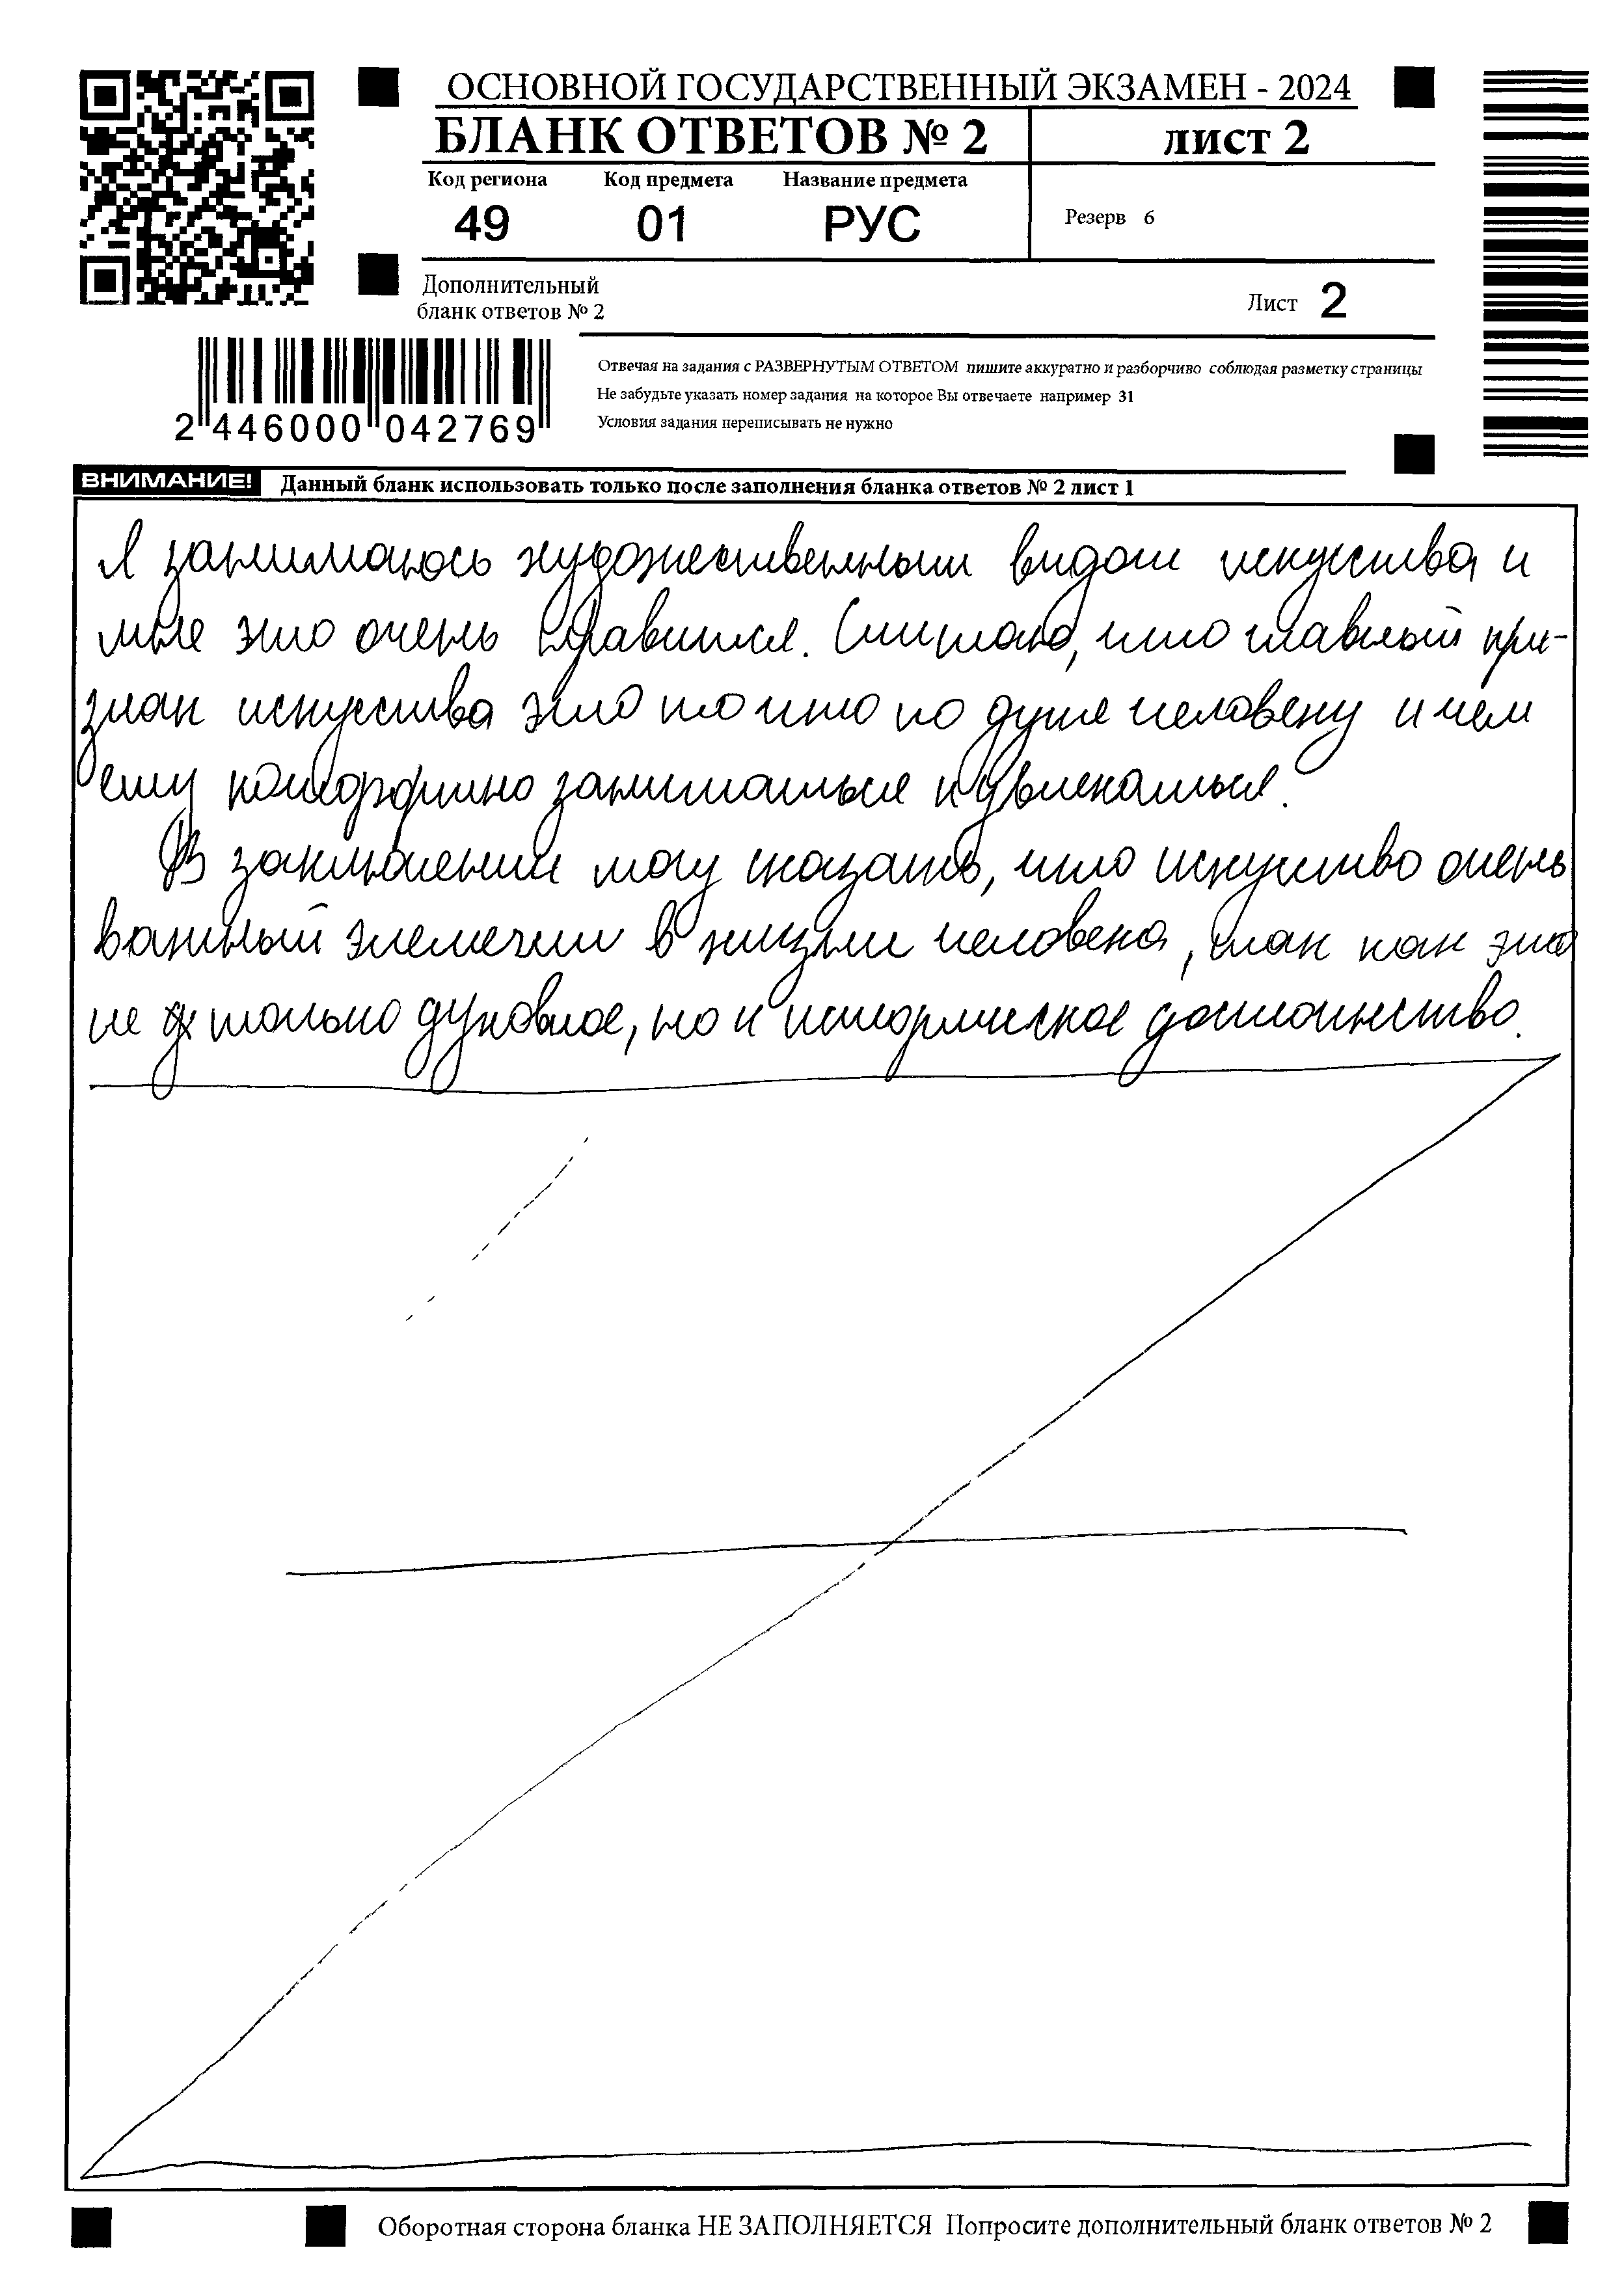 ОСНОВНОЙ ГОСУДАРСТВЕННЫЙ ЭКЗАМЕН - 2024
БЛАНК ОТВЕТОВ № 2
лист 2
Код региона
Код предмета
Название предмета
49
01
РУС
Резерв 6
Дополнительный
бланк ответов № 2
Лист 2
Отвечая на задания с РАЗВЕРНУТЫМ ОТВЕТОМ пишите аккуратно и разборчиво соблюдая разметку страницы
Не забудьте указать номер задания на которое Вы отвечаете например 31
Условия задания переписывать не нужно
2 446000 042769
ВНИМАНИЕ! Данный бланк использовать только после заполнения бланка ответов № 2 лист 1
Я занимаюсь художественным видом искусства и
мне это очень нравится. Считаю, что главный при-
знак искусства это то что по душе человеку и чем
ему комфортно заниматься и увлекаться.
В заключении могу сказать, что искуство очень
важный элемент в жизни человека, так как это
не только духовное, но и историческое достоинство.
Оборотная сторона бланка НЕ ЗАПОЛНЯЕТСЯ Попросите дополнительный бланк ответов № 2